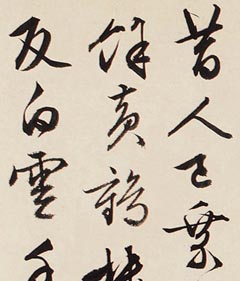 昔人已乘
餘黃鶴樓
反白雲千